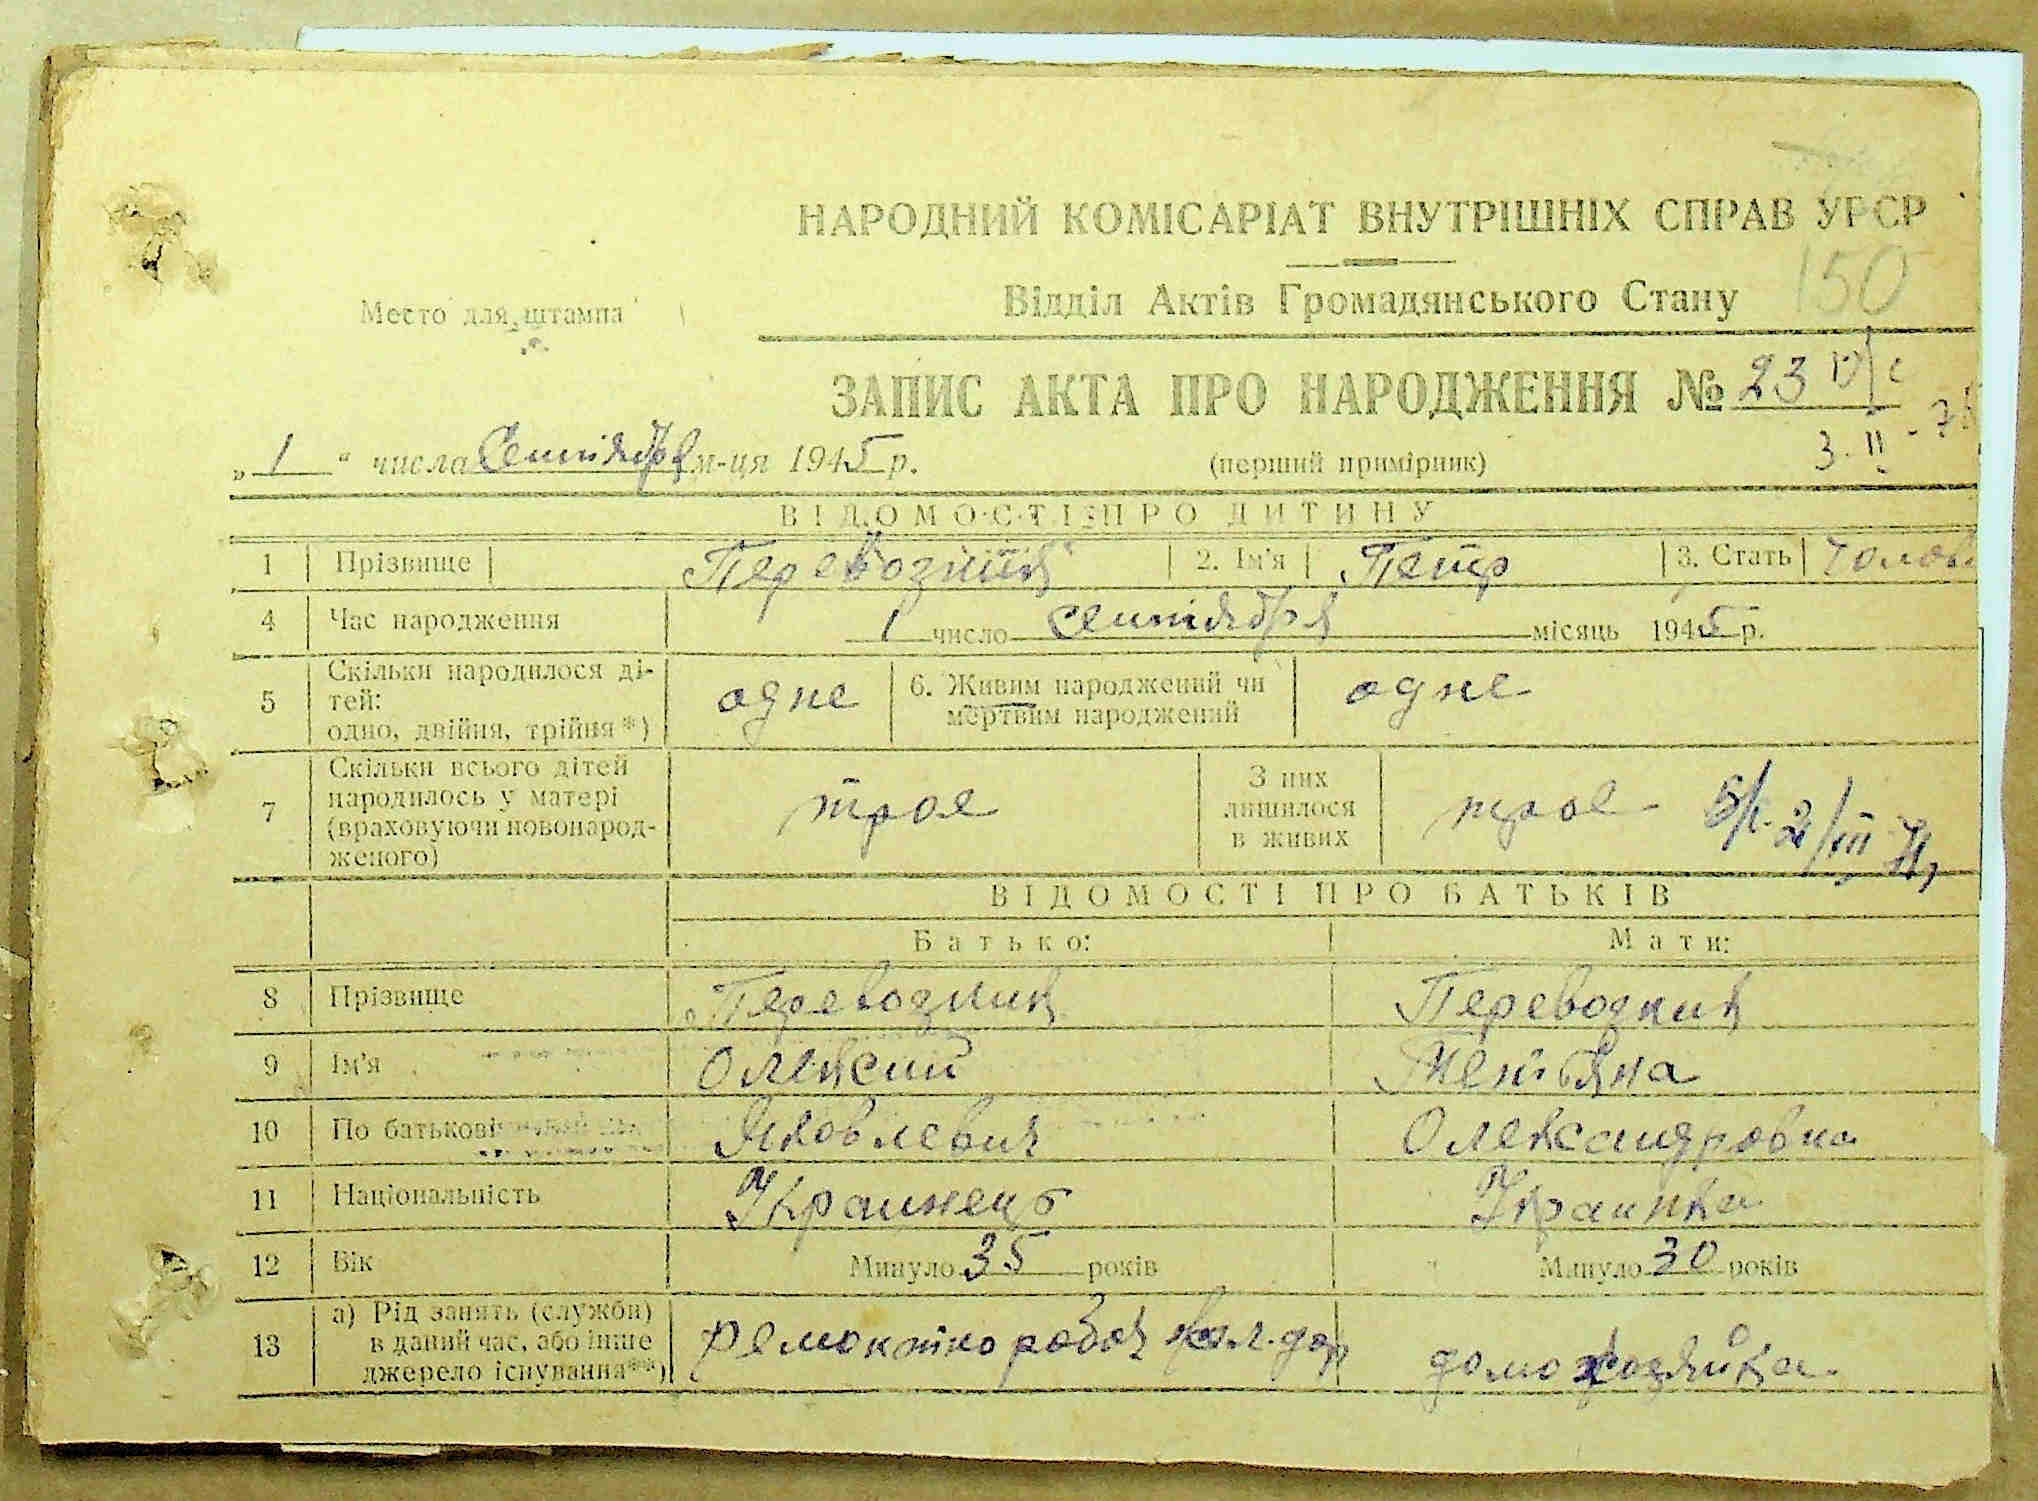 НАРОДНИЙ КОМІСАРІАТ ВНУТРІШНІХ СПРАВ УРСР
150
Место для штампа
Відділ Актів Громадянського Стану
ЗАПИС АКТА ПРО НАРОДЖЕННЯ № 23
„ 1 “ числа Сентября м-ця 1945 р. (перший примірник) 3.II
ВІДОМОСТІ ПРО ДИТИНУ
1 Прізвище Перевозник 2. Ім'я Петр 3. Стать Чолов
4 Час народження 1 число сентября місяць 1945 р.
5 Скільки народилося ді-
тей:
одно, двійня, трійня*) одне 6. Живим народжений чи
мертвим народжений одне
7 Скільки всього дітей
народилось у матері
(враховуючи новонарод-
женого) трое З них
лишилося
в живих трое
ВІДОМОСТІ ПРО БАТЬКІВ
Батько: Мати:
8 Прізвище Перевозник Перевозник
9 Ім'я Олексий Тетьяна
10 По батькові Яковлевич Олександровна
11 Національність Украинець Украинка
12 Вік Минуло 35 років Минуло 30 років
13 а) Рід занять (служби)
в даний час, або інше
джерело існування**) Ремонтно робоч жел.дор домохозяйка